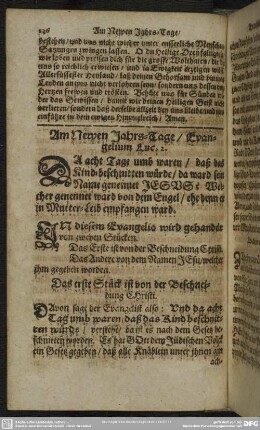 Am Newen Jahrs-Tage/
bestehen/ und uns nicht wieder unter eusserliche Menschen
Satzungen zwingen lassen. O du Heilige Dreyfaltigkeit
wir loben und preisen dich für die grosse Wolthaten/
Allersüssester Heyland/ laß deinen Gehorsam und deine
Leiden an uns nicht verlohren seyn/ sondern uns dessen im
Hertzen frewen und trösten. Behüte uns für Sünden wi-
der das Gewissen/ damit wir deinen Heiligen Geist nicht
verlieren/ sondern daß derselbe allzeit bey uns bleibe und uns
einführe in dein ewiges Himmelreich/ Amen.
Am Newen Jahrs-Tage/ Evan-
gelium Luc. 2.
DA acht Tage umb waren/ daß das
Kind beschnitten würde/ da ward sein
Name genennet JESUS: Wel-
cher genennet ward von dem Engel/ ehe denn er
in Mutter-Leib empfangen ward.
IN diesem Evangelio wird gehandelt
von zweyen Stücken.
Das Erste ist von der Beschneidung Christi.
Das Andere von dem Namen JEsu/ welcher
ihm gegeben worden.
Das erste Stück ist von der Beschnei-
dung CHristi.
Davon sagt der Evangelist also: Und da acht
Tag umb waren/ daß das Kind beschnit-
ten würde/ verstehe/ da ist es nach dem Gesetz be-
schnitten worden. Es hat GOtt dem Jüdischen Volck
ein Gesetz gegeben/ daß alle Knäblein unter ihnen am
ach-